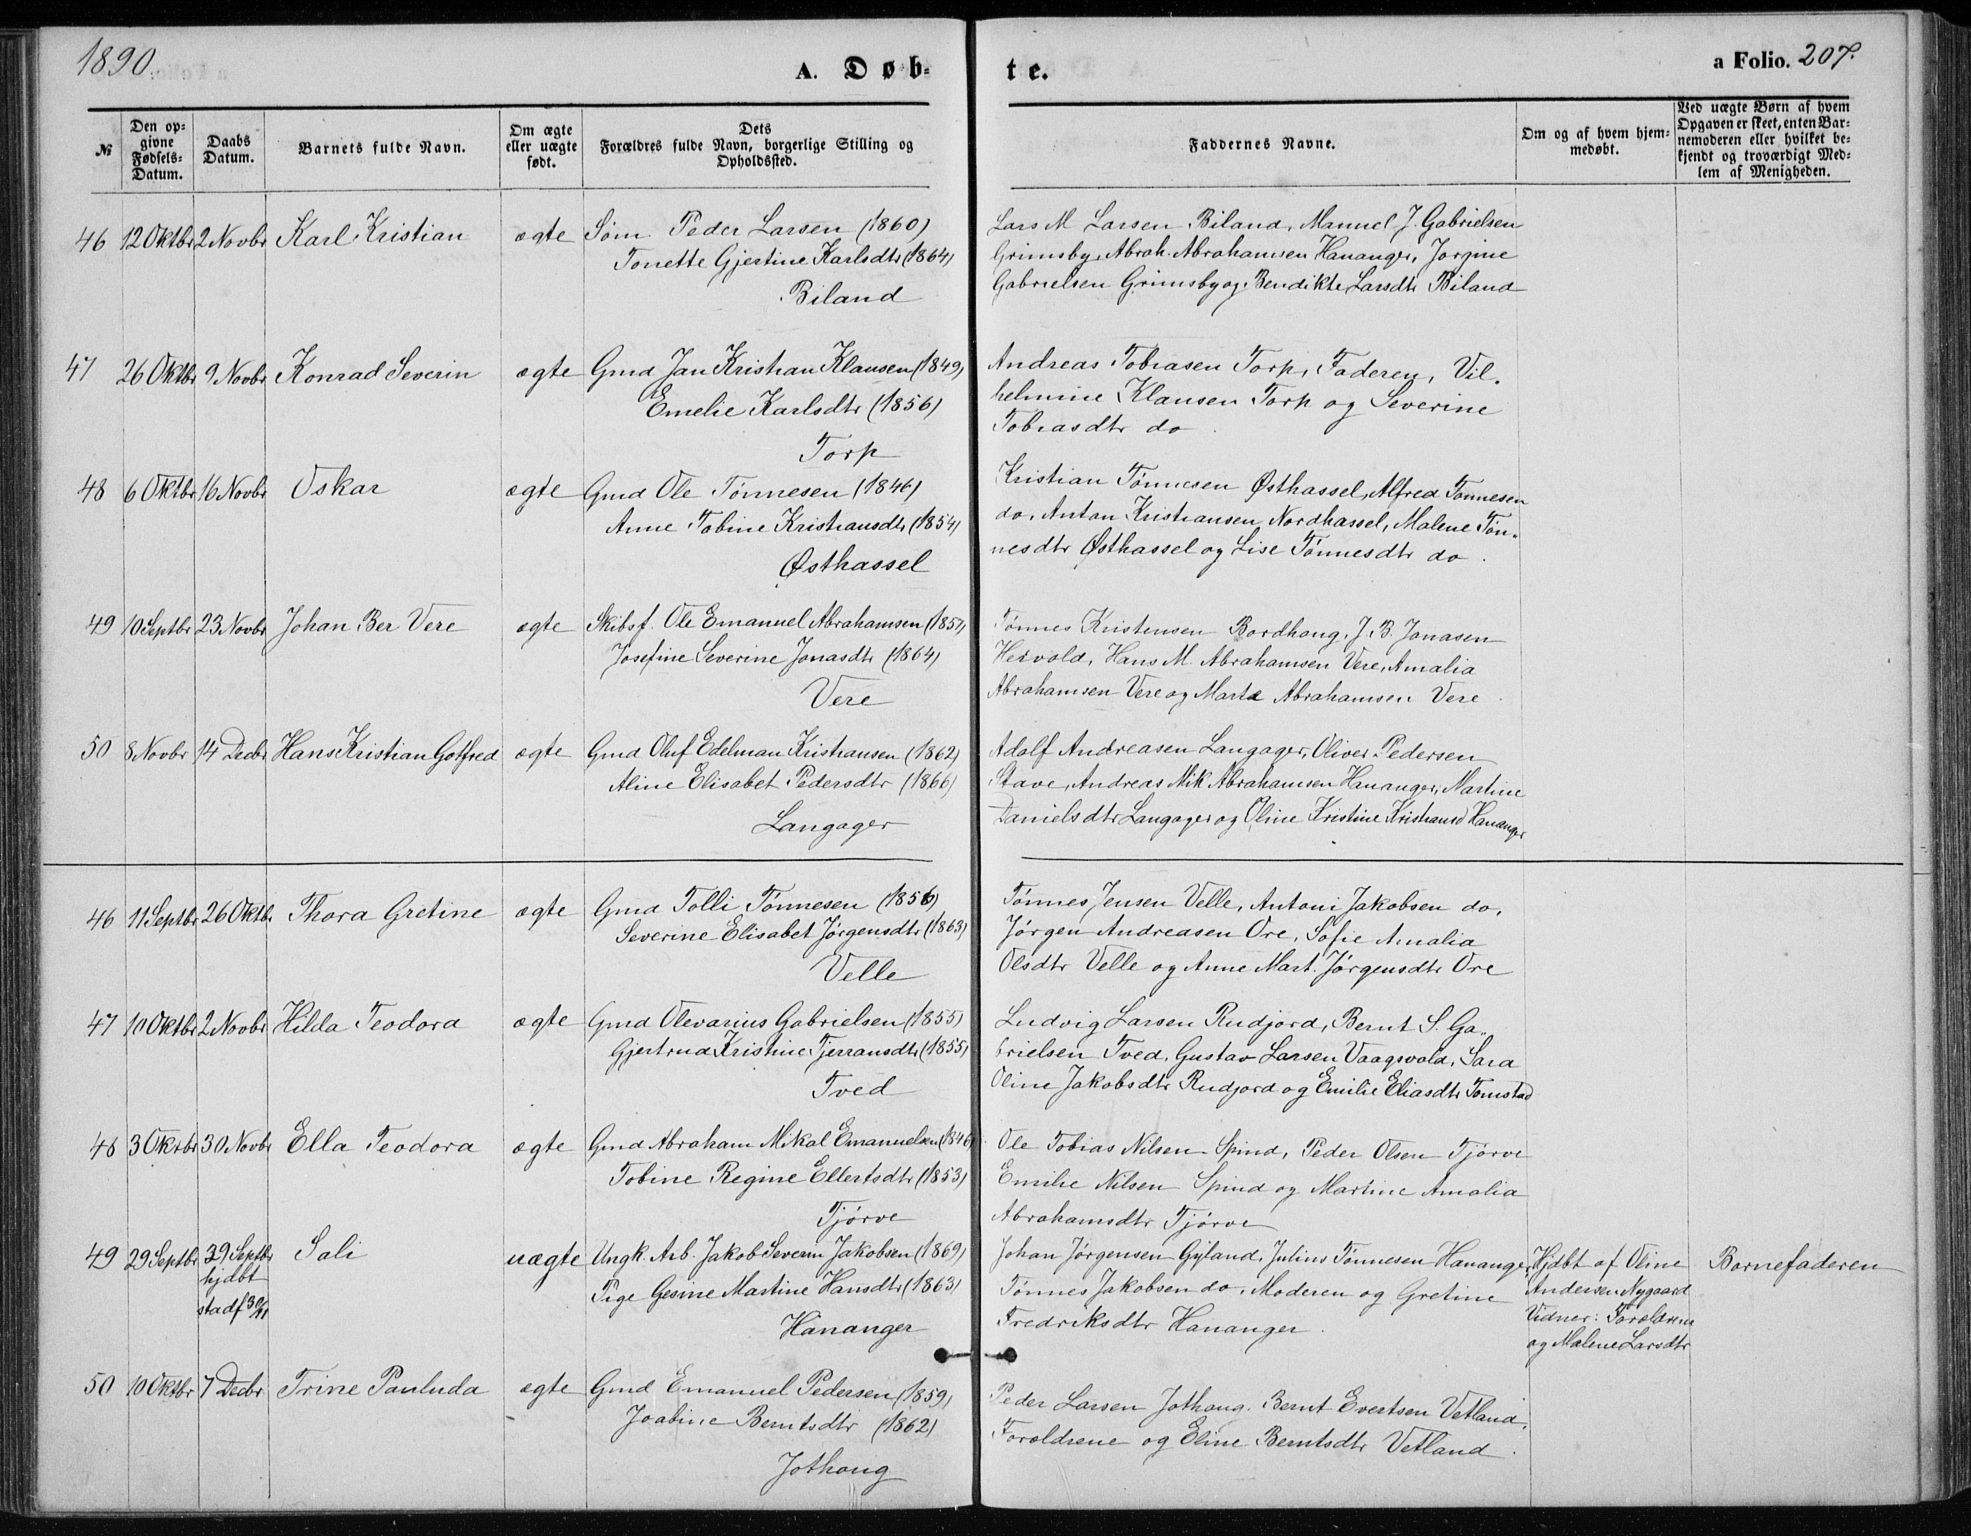 1890.
A. Døb-
te.
a Folio. 207.
№
Den op-
givne
Fødsels-
Datum.
Daabs
Datum.
Barnets fulde Navn.
Om ægte
eller uægte
født.
Dets
Forældres fulde Navn, borgerlige Stilling og
Opholdssted.
Faddernes Navne.
Om og af hvem hjem-
medøbt.
Ved uægte Børn af hvem
Opgaven er skeet, enten Bar-
nemoderen eller hvilket be-
kjendt og troværdigt Med-
lem af Menigheden.
46 12 Oktbr 2 Novbr Karl Kristian ægte Søm. Peder Larsen (1860)
Tonette Gjertine Karlsdtr (1864)
Biland
Lars M Larsen Biland, Manuel J. Gabrielsen
Grimsby, Abrah. Abrahamsen Hananger, Jørgine
Gabrielsen Grimsby og Bendikte Larsdtr Biland
47 26 Oktbr 9 Novbr Konrad Severin ægte Gmd Jan Kristian Klausen (1849)
Emelie Karlsdtr (1856)
Torp
Andreas Tobiasen Torp, Faderen, Vil-
helmine Klausen Torp og Severine
Tobiasdtr do.
48 6 Oktbr 16 Novbr Oskar ægte Gmd Ole Tønnesen (1846)
Anne Tobine Kristiansdtr (1854)
Østhassel
Kristian Tønnesen Østhassel, Alfred Tønnesen
do, Anton Kristiansen Nordhassel, Malene Tøn-
nesdtr Østhassel og Lise Tønnesdtr do.
49 10 Septbr 23 Novbr Johan Ber Vere ægte Skibsf. Ole Emanuel Abrahamsen (1857)
Josefine Severine Jonasdtr (1864)
Vere
Tønnes Kristensen Bordhaug, J. B. Jonasen
Hervold, Hans M. Abrahamsen Vere, Amalia
Abrahamsen Vere og Marta Abrahamsen Vere
50 8 Novbr 14 Decbr Hans Kristian Gotfred ægte Gmd Oluf Edelman Kristiansen (1862)
Aline Elisabet Pedersdtr (1866)
Langager
Adolf Andreasen Langager, Oliver Pedersen
Stave, Andreas Mik Abrahamsen Hananger, Martine
Danielsdtr Langager og Oline Kristine Kristiansd Hananger
46 11 Septbr 26 Oktb. Thora Gretine ægte Gmd Tolli Tønnesen (1856)
Severine Elisabet Jørgensdtr (1863)
Velle
Tønnes Jensen Velle, Antoni Jakobsen do,
Jørgen Andreasen Ore, Sofie Amalia
Olsdtr Velle og Anne Mart. Jørgensdtr Ore
47 10 Oktbr 2 Novbr Hilda Teodora ægte Gmd Olevarius Gabrielsen (1855)
Gjertrud Kristine Tjerransdtr (1855)
Tved
Ludvig Larsen Rudjord, Bernt S. Ga-
brielsen Tved, Gustav Larsen Vaagsvold, Sara
Oline Jakobsdtr Rudjord og Emilie Eliasdtr Tomstad
48 3 Oktbr 30 Novbr Ella Teodora ægte Gmd Abraham Mikal Emanuelsen (1846)
Tobine Regine Ellertsdtr (1853)
Tjørve
Ole Tobias Nilsen Spind, Peder Olsen Tjørve
Emilie Nilsen Spind og Martine Amalia
Abrahamsdtr Tjørve
49 29 Septbr 29 Septbr Sali uægte Ungk. Arb. Jakob Severin Jakobsen (1869)
hjdbt
stadf 30/11
Pige Gesine Martine Hansdtr (1863)
Hananger
Johan Jørgensen Gyland, Julius Tønnesen Hananger,
Tønnes Jakobsen do, Moderen og Gretine
Fredriksdtr Hananger.
Hjdbt af Oline
Andersen Nygaard
Vidner: Forældrene
og Malene Larsdtr
Barnefaderen
50 10 Oktbr 7 Decbr Trine Pauluda ægte Gmd Emanuel Pedersen (1859)
Joabine Berntsdtr (1862)
Jothaug
Peder Larsen Jothaug, Bernt Evertsen Vetland,
Forældrene og Eline Berntsdtr Vetland.